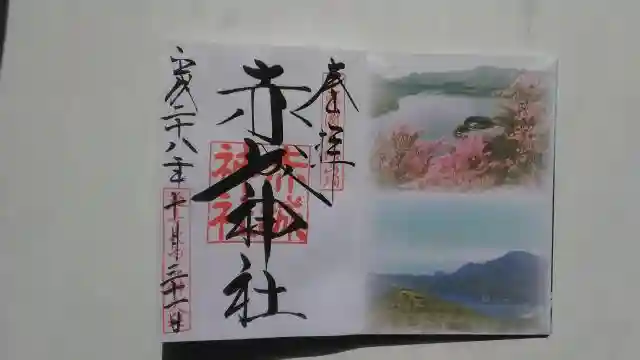 奉拝
赤城神社
赤城
神社
平成二十八年十月三十一日